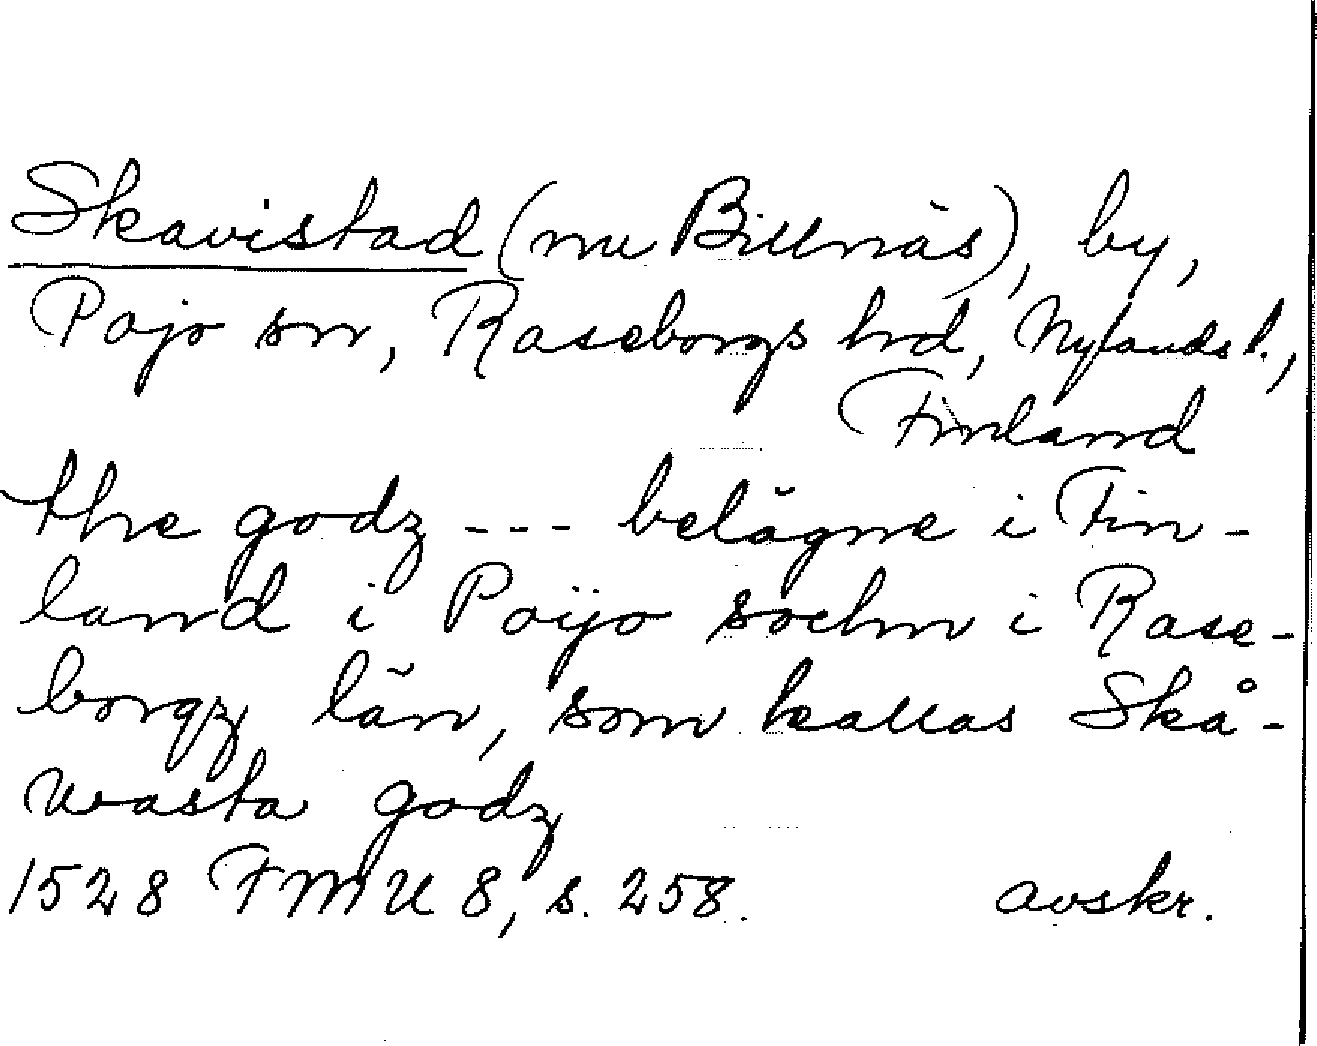 Skavistad (nu Billnäs), by,
Pojo sn, Raseborgs hrd, Nylands l.,
Finland
the godz --- belägne i Fin-
land i Poijo sochn i Rase-
borgz län, som kallas Skå-
wasta godz
1528 FMU 8, s. 258. avskr.